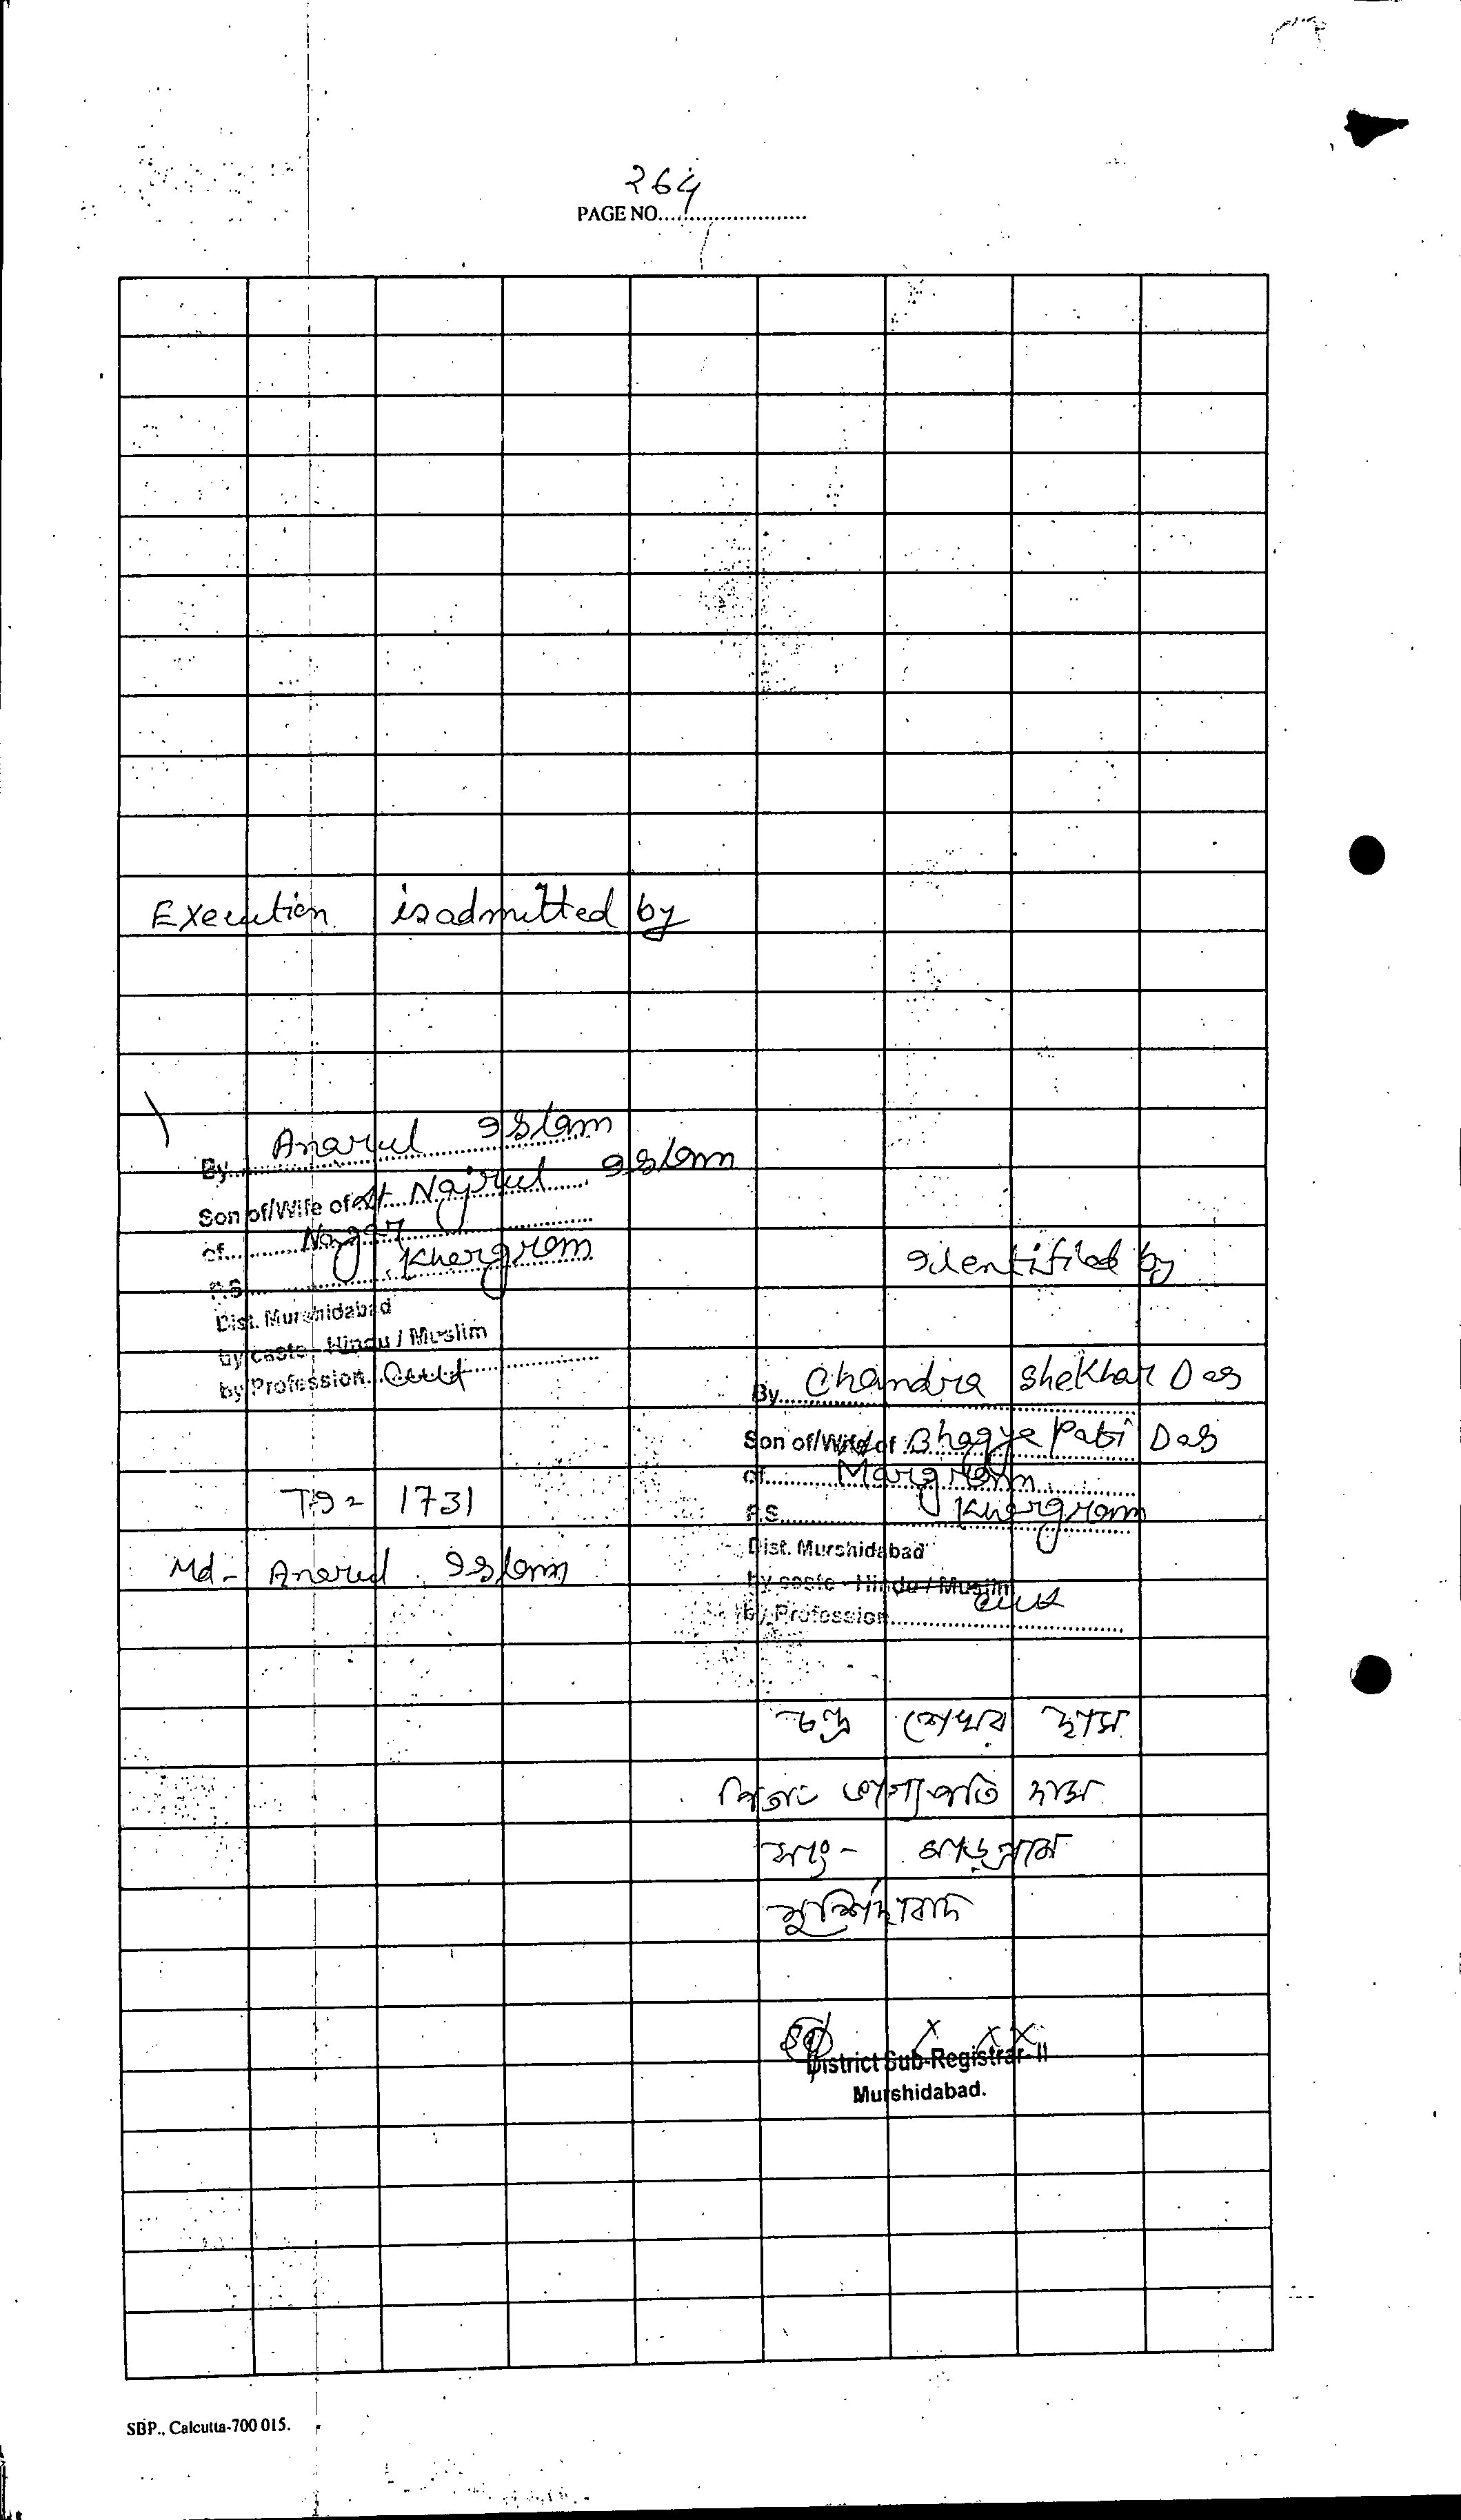 264
PAGE NO.........................
Execution is admitted by
By Anarul Islam
Son of/Wife of Lt. Najrul Islam
of Nagar
P.S. Khargram
Dist. Murshidabad
by caste - Hindu / Muslim
by Profession Cult
Identified by
By Chandra Shekhar Das
Son of/Wife of Bhagya Pati Das
of Margram
P.S. Khargram
Dist. Murshidabad
by caste - Hindu / Muslim
by Profession Cult
TI = 1731
Md - Anarul Islam
চন্দ্র শেখর দাস
পিতা ভাগ্যপতি দাস
সাং - মাড়গ্রাম
মুর্শিদাবাদ
Sd/ x x x
District Sub-Registrar-II
Murshidabad.
SBP., Calcutta-700 015.